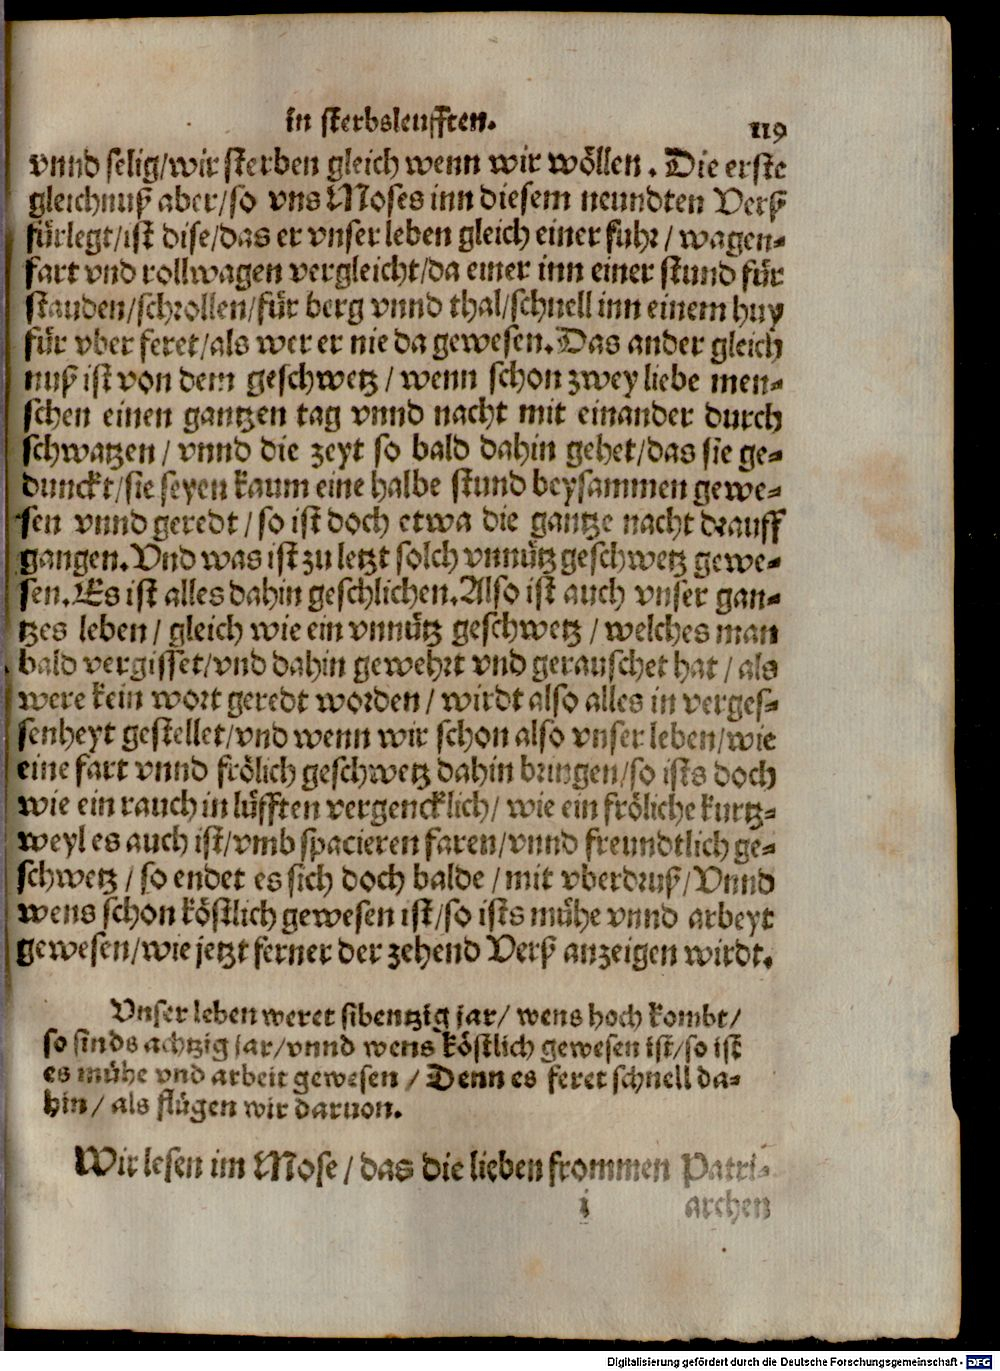 in sterbsleufften.
119
vnnd selig/wir sterben gleich wenn wir wöllen. Die erste
gleichnuß aber/so vns Moses inn diesem neundten Verß
fürlegt/ist dise/das er vnser leben gleich einer fuhr/wagen-
fart vnd rollwagen vergleicht/da einer inn einer stund für
stauden/schrollen/für berg vnnd thal/schnell inn einem huy
für vber feret/als wer er nie da gewesen. Das ander gleich
nuß ist von dem geschwetz/wenn schon zwey liebe men-
schen einen gantzen tag vnnd nacht mit einander durch
schwatzen/vnnd die zeyt so bald dahin gehet/das sie ge-
dunckt/sie seyen kaum eine halbe stund beysammen gewe-
sen vnnd geredt/so ist doch etwa die gantze nacht drauff
gangen. Vnd was ist zu letzt solch vnnütz geschwetz gewe-
sen. Es ist alles dahin geschlichen. Also ist auch vnser gan-
tzes leben/gleich wie ein vnnütz geschwetz/welches man
bald vergisset/vnd dahin gewehrt vnd gerauschet hat/als
were kein wort geredt worden/wirdt also alles in verges-
senheyt gestellet/vnd wenn wir schon also vnser leben/wie
eine fart vnnd frölich geschwetz dahin bringen/so ists doch
wie ein rauch in lüfften vergencklich/wie ein fröliche kurtz-
weyl es auch ist/vmb spacieren faren/vnnd freundtlich ge-
schwetz/so endet es sich doch balde/mit vberdruß/Vnnd
wens schon köstlich gewesen ist/so ists mühe vnnd arbeyt
gewesen/wie jetzt ferner der zehend Verß anzeigen wirdt.
Vnser leben weret sibentzig jar/wens hoch kombt/
so sinds achtzig jar/vnnd wens köstlich gewesen ist/so ist
es mühe vnd arbeit gewesen/Denn es feret schnell da-
hin/als flügen wir daruon.
Wir lesen im Mose/das die lieben frommen Patri-
i archen
Digitalisierung gefördert durch die Deutsche Forschungsgemeinschaft - DFG